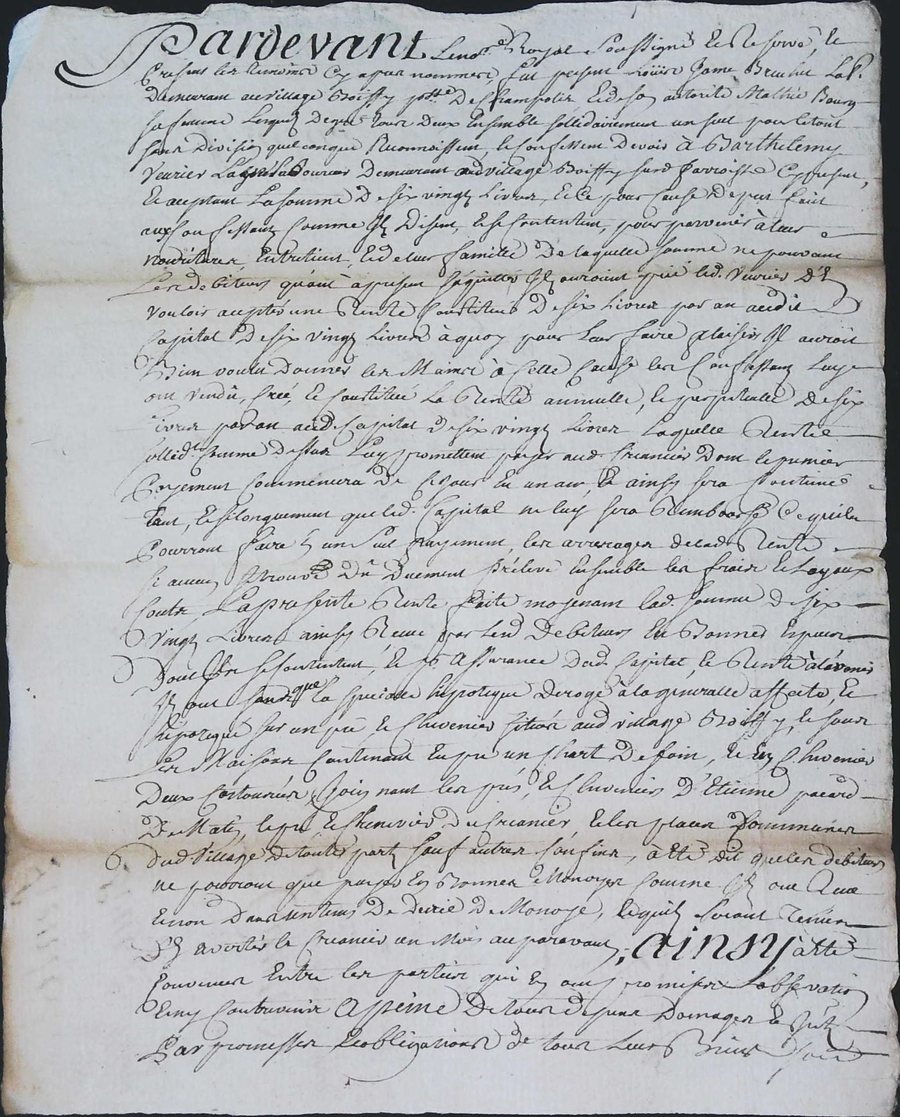 Pardevant Le not.e Royal Soussigné et Reservé, et
presens les temoins Cy apres nommées fut present Jame
Demeurant au village Boiffy p.sse De Champoliex, et de Son autorité Mathie Bourg
sa femme Lesquels De gré tous Deux Ensemble Sollidairement un seul pour le tout
sans Division quelconque Reconnoissent et confessent Devoir à Barthelemy
Vevrier Laboureur Demeurant au village Boiffy susd. Parroisse Cy present,
Et aceptant La somme De six vingt Livres, et ce pour Cause De pret fait
aux Confessants comme Ils Disent, et se Contentent, pour parvenir à Leur
nouriture Entretient, et de leur famille De laquelle somme ne pouvant
Les debiteurs quant à present Saquitter Ils auroient prié led. Vevrier De
vouloir accepter une Rente Constituée De six Livres par an audit
Capital De six vingt Livres à quoy pour Leur faire plaisir Il auroit
Bien voulu Donner les Mains à Cette Cause les Confessants Luy
ont vendû, Créé, et Constitué La Rente annuelle, et perpetuelle De six
Livres par an aud. Capital De six vingt Livres Laquelle Rente
somme Dessus Luy promettent payer aud. Creancier Dont le premier
Payement Commencera De ce jour En un an, Et ainsy sera Continué
tant, et sy longuement que led. Capital ne luy sera Remboursé Ce qu'ils
Pourront faire En un seul Payement, les arrerages de lad. Rente
si aucuns se trouve Dû Duement Prélevé Ensemble les fraix et Loyaux
Couts La presente Rente faite moyenant lad. somme De six
vingt Livres ainsy Reçue par Lesd. Debiteurs En Bonnes Especes
Dont Ils se Contentent, et p.r assurance Dud. Capital et Rente à l'avenir
Ils ont sans que La speciale hipotteque Deroge à la generalle affecté et
hipotequé sur un pré et Chenevier situés aud. village Boiffy, et sous
Les Maisons Contenant En pré un Chart De foin, et En Chenevier
Deux Cartouniere Joignant les prés, et Cheneviers D'Etienne
De Maté, le pré et Chenevier Du Creancier et les places Communes
Dud. Village De toutes parts sauf autres Confins, a été dit que les debiteurs
ne pourront que payer En Bonnes Monoyes Comme Ils ont Reçu
et non Dans un tems De Decrie De Monoye, et quils seront Tenus
D'En avertir le Creancier un Mois auparavant, ainsy a été
Convenus Entre les parties qui En ont promises L'observation
et n'y Contrevenir A peine De tous Depens Domages Et
Par promesses et obligations De tous Leurs Biens